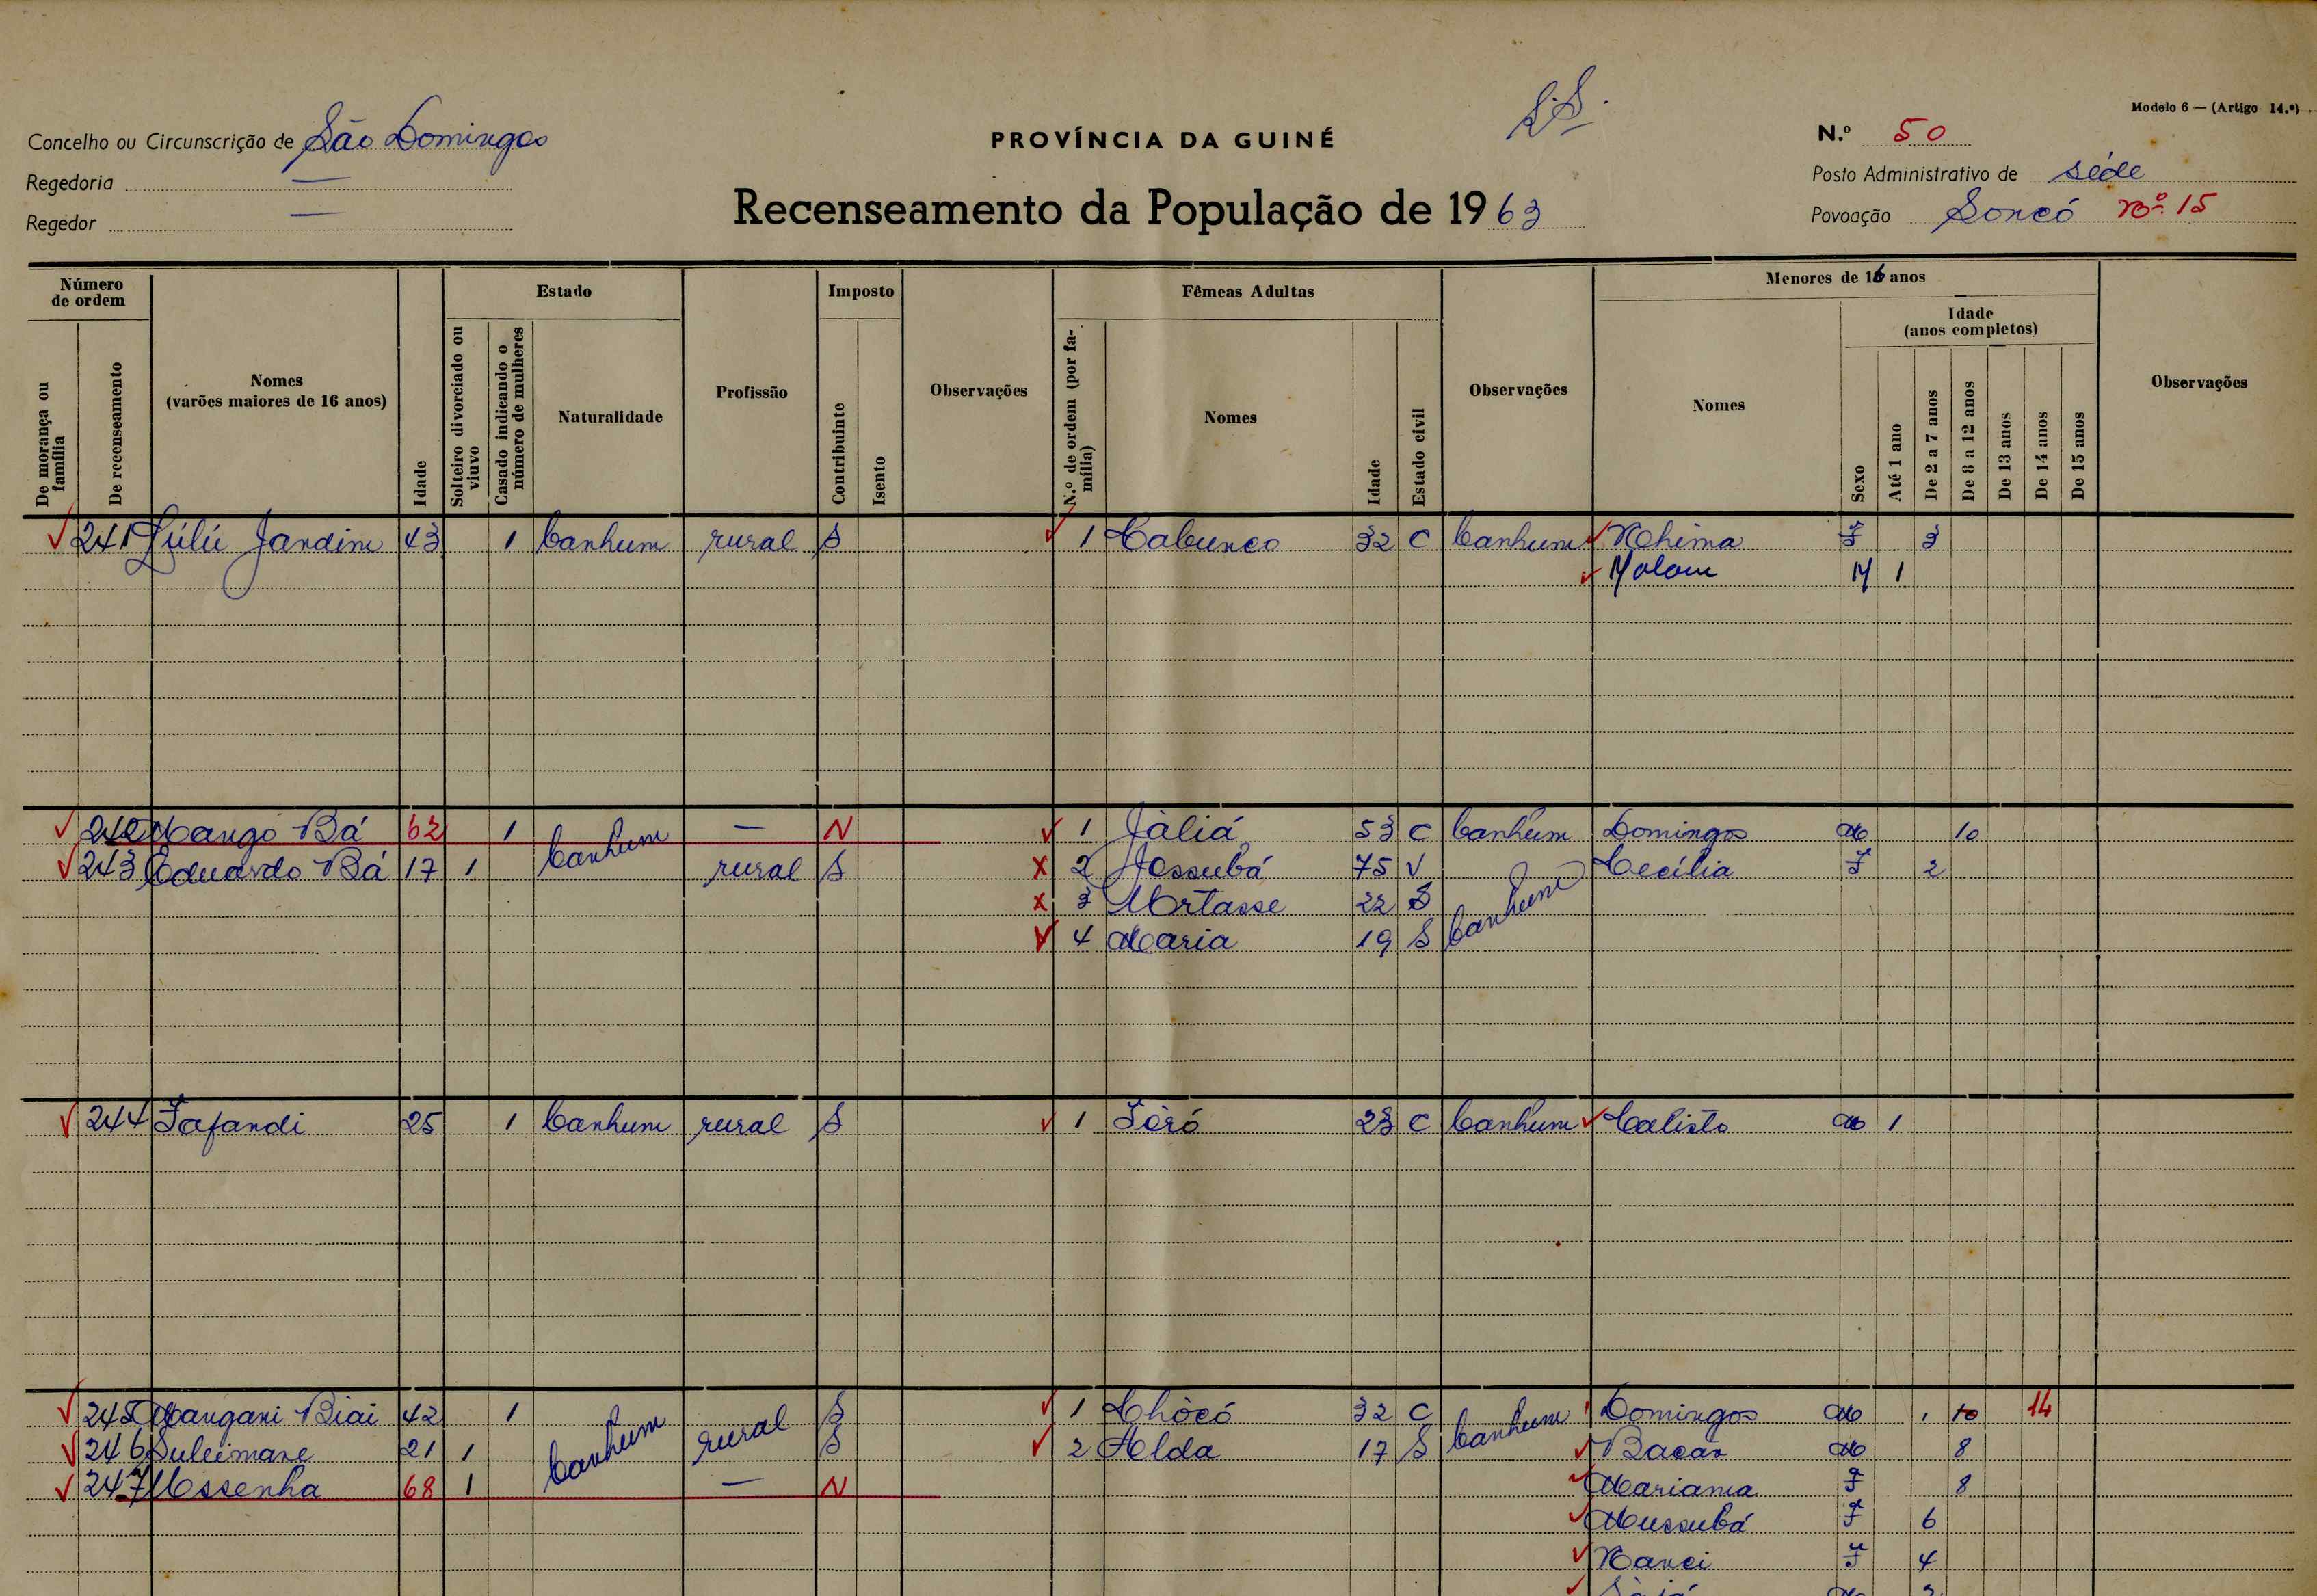 S.S.
Modelo 6 — (Artigo 14.º)
Concelho ou Circunscrição de São Domingos
PROVÍNCIA DA GUINÉ
N.º 50
Regedoria —
Posto Administrativo de Séde
Regedor —
Recenseamento da População de 1963
Povoação Soncó Nº 15
Número de ordem
Estado
Imposto
Fêmeas Adultas
Menores de 16 anos
Idade (anos completos)
De morança ou família
De recenseamento
Nomes (varões maiores de 16 anos)
Idade
Solteiro divorciado ou viuvo
Casado indicando o número de mulheres
Naturalidade
Profissão
Contribuinte
Isento
Observações
N.º de ordem (por família)
Nomes
Idade
Estado civil
Observações
Nomes
Sexo
Até 1 ano
De 2 a 7 anos
De 8 a 12 anos
De 13 anos
De 14 anos
De 15 anos
Observações
241 Júlii Jandim 43 1 Canhum rural S 1 Cabunco 32 C Canhum Nhima F 3
Malam M 1
242 Mango Bá 62 1 Canhum — N 1 Jàliá 53 C Canhum Domingos M 10
243 Eduardo Bá 17 1 rural S 2 Assubá 75 V Canhum Cecília F 2
3 22 S
4 Maria 19 S
244 Fafandi 25 1 Canhum rural S 1 Tóró 23 C Canhum Calisto M 1
245 Mangani Biai 42 1 Canhum rural S 1 Chòcó 32 C Canhum Domingos M 10 14
246 Suleimane 21 1 S 2 Alda 17 S Bacar M 8
247 Ussenha 68 1 — N Mariama F 8
Mussubá F 6
Nanci F 4